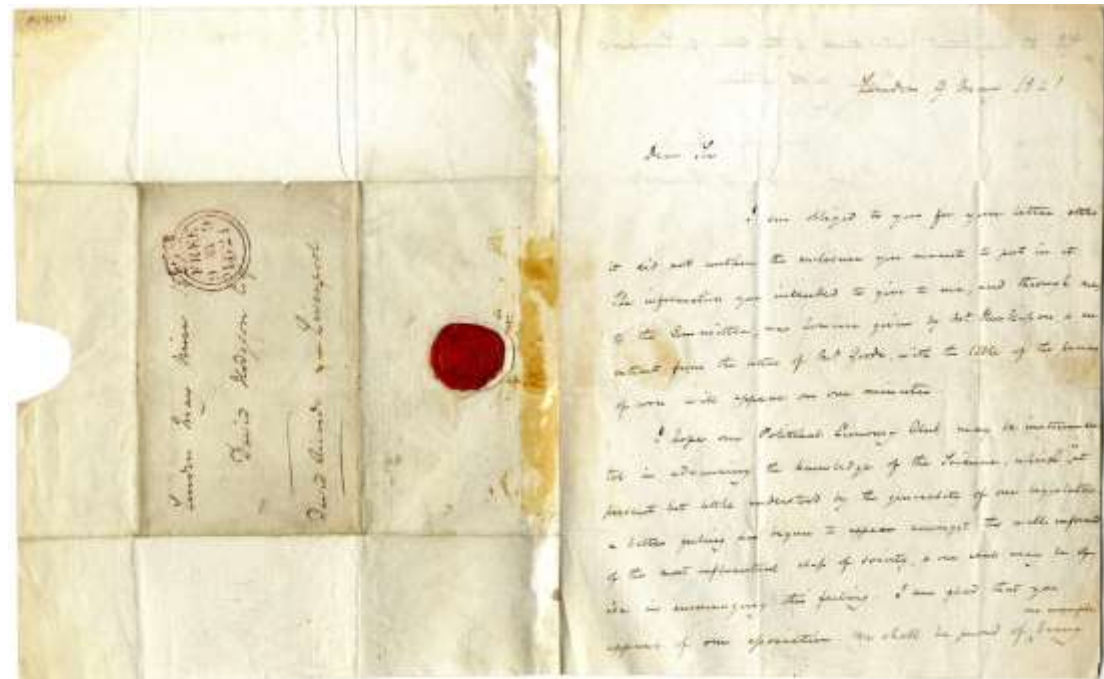 London May nine
David Hodgson Esq
David Ricardo Liverpool
FREE
1821
London 9 May 1821
Dear Sir
I am obliged to you for your letter altho
it did not contain the enclosure you meant to put in it
The information you intended to give to me, and through me
to the Committee, was however given by Mr.
extract from the letter of Mr. with the table of the
of will appear on our minutes
I hope our Political Economy Club may be instrumen
tal in advancing the knowledge of the Science, which is at
present but little understood by the generality of our legislators
a better feeling has begun to appear amongst the well informed
of the most influential class of society, & our club may be of
use in encouraging this feeling. I am glad that you
approve of our association we shall be proud of